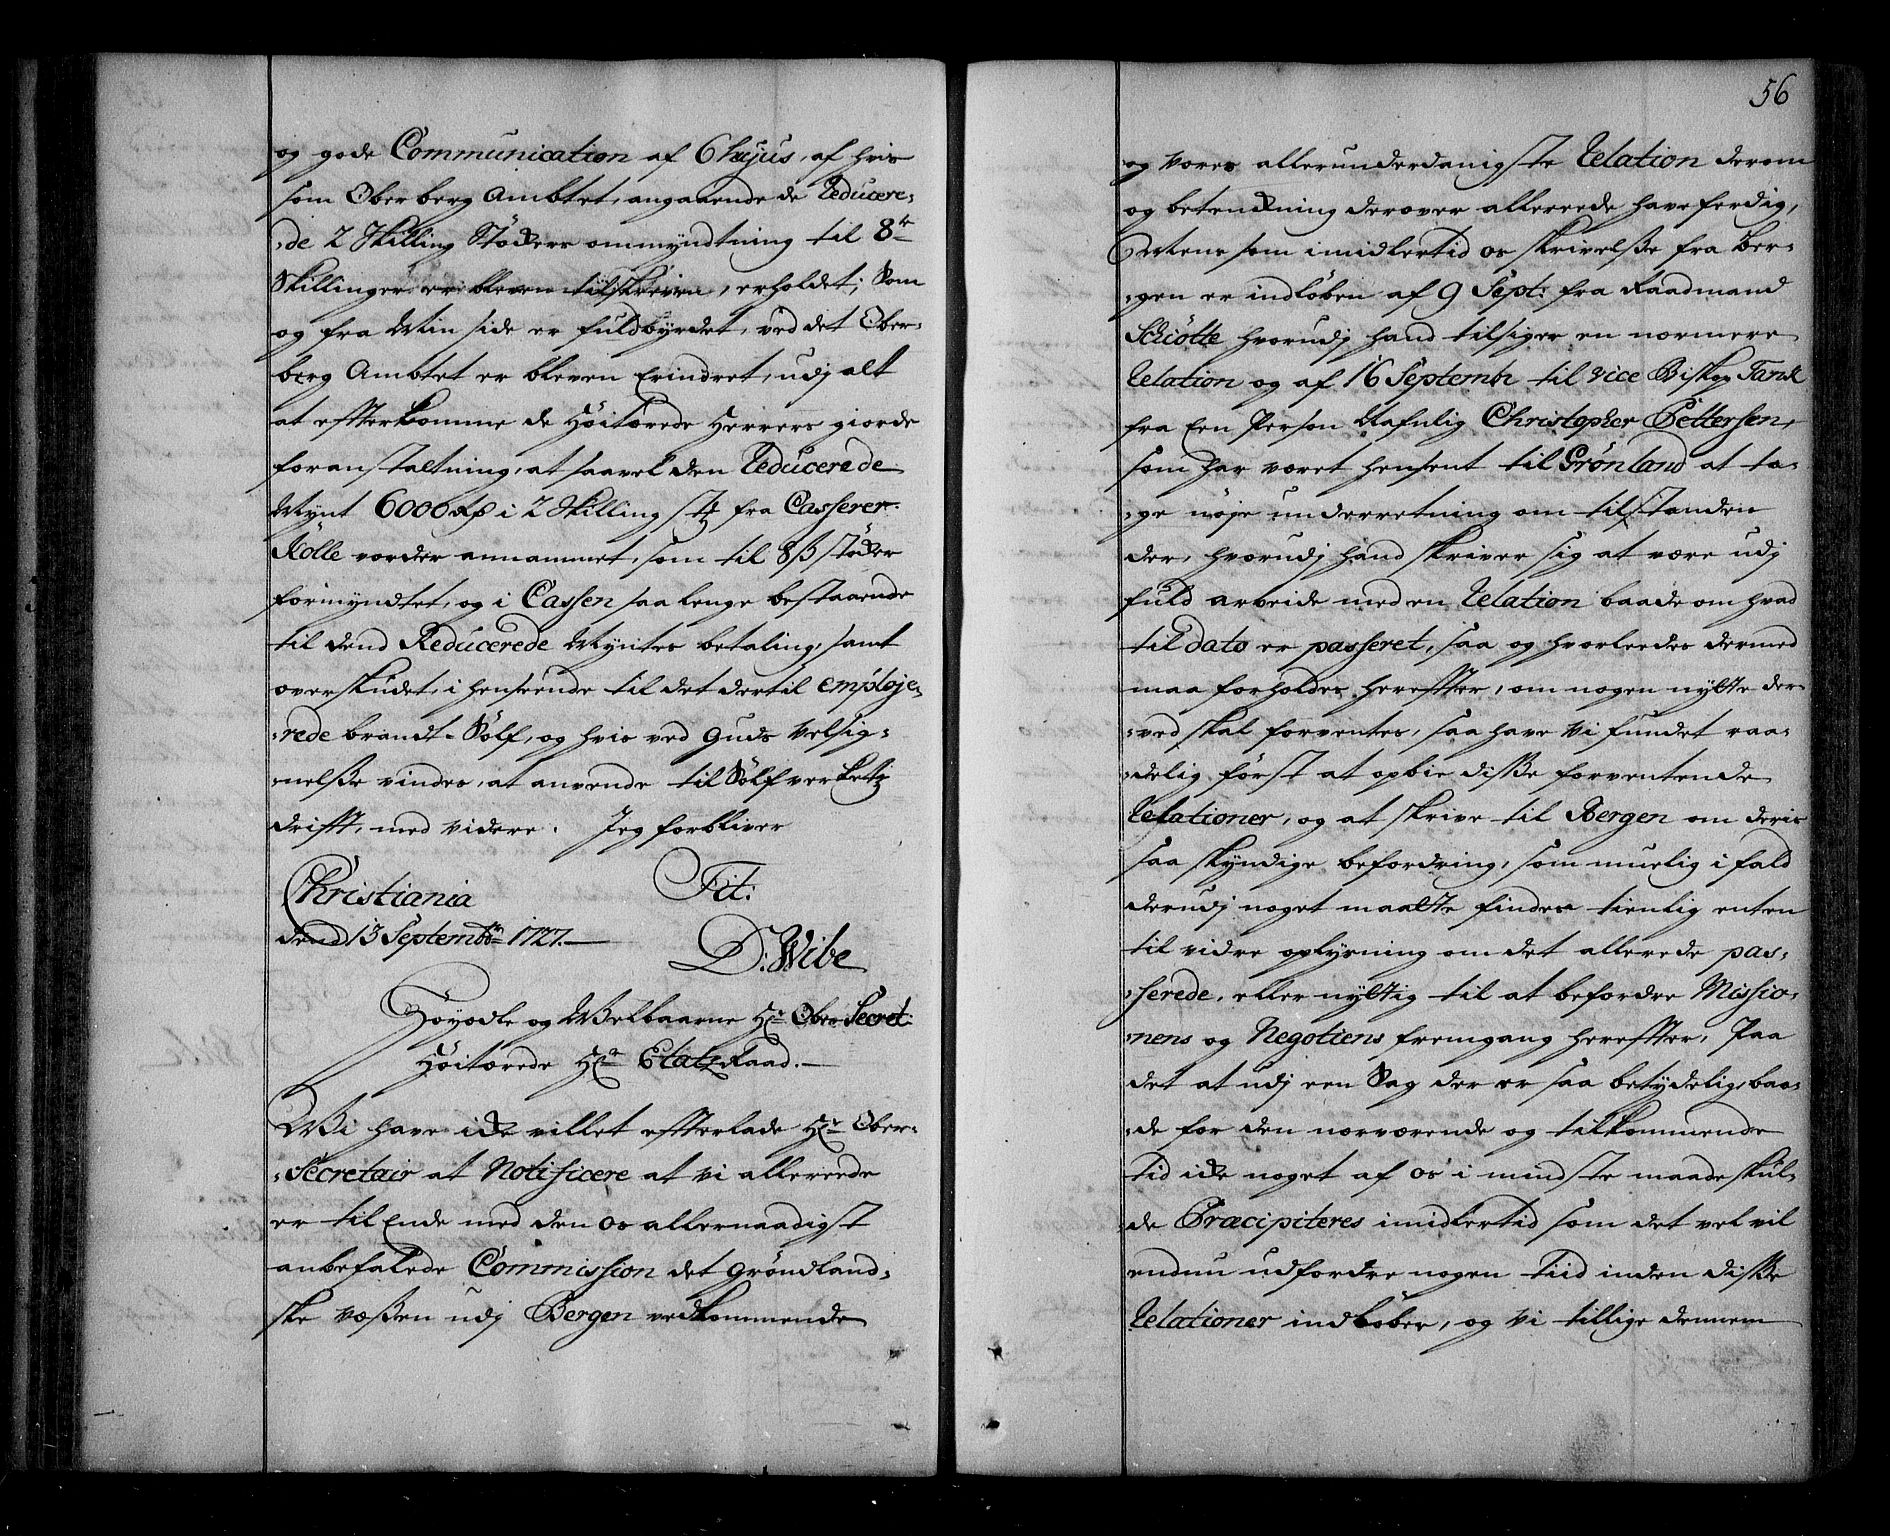 og gode Communication af 6 hujus, af hvis
som Oberberg Ambtet, angaaende de Reducere-
-de 2 Skilling Støckers ommyndtning til 8te
Skillinger er bleven tilskreven, erholdet; Som
og fra Min side er fuldbyrdet, ved det Ober-
berg Ambtet er bleven Erindret, udj alt
at efterkomme de Høitærede Herrers giorde
foranstaltning, at saavel den Reducerede
Mynt 6000 Rd i 2 Skilling st. fra Casserer
Rølle vorder annammet, som til 8 ß støcker
formyndtet, og i Cassen saa lenge bestaaende
til dend Reducerede Myntes betaling, samt
overskudet, i henseende til det dertil employe-
-rede brandt-Sølf, og hvis ved Guds Velsig-
-nelße vindes, at anvende til Sølfverketz
drifft, med videre. Jeg forbliver
Christiania Tit:
dend 13 Septembr 1727.
D: Wibe
Høyædle og Welbaarne Hr Ober Secret:
Høitærede Hr Etatz Raad.
Wi have icke villet efterlade Hr Ober-
-Secretair at Notificere at vi allereede
er til Ende med den os allernaadigst
anbefalede Commission det Grøndland-
ske Væßen udj Bergen vedkommende
56
og Vores allerunderdanigste Relation derom
og betenckning derover allereede have ferdig,
Mens som imidlertid os skrivelße fra Ber-
-gen er indløben af 9 Sept: fra Raadmand
Schiøtte hvorudj hand tilsiger en nærmere
Relation og af 16 Septembr til Vice Biskop Tanck
fra Een Person Nafnlig Christopher Pettersen,
som har været hensent til Grønland at ta-
-ge nøje underretning om tilstanden
der, hvorudj hand skriver sig at være udj
fuld arbeide med en Relation baade om hvad
til dato er passeret, saa og hvorleedes dermed
maa forholdes hereffter, om nogen nytte der-
-ved skal forventes, saa have Vi fundet raa-
-delig først at opbie disße forventende
Relationer, og at skrive til Bergen om deris
saa skyndige befordring, som muelig i fald
derudj noget maatte findes tienlig enten
til vidre oplysning om det allerede pas-
-serede, eller nyttig til at befordre Missio-
-nens og Negotiens fremgang hereffter, Paa
det at udj een Sag der er saa betydelig, baa-
-de for den nærværende og tilkommende
tid icke noget af os i mindste maade skul-
de Præcipiteres imidlertid som det vel vil
endnu udfordre nogen tiid inden disße
Relationer indkober, og Vi tillige dennem